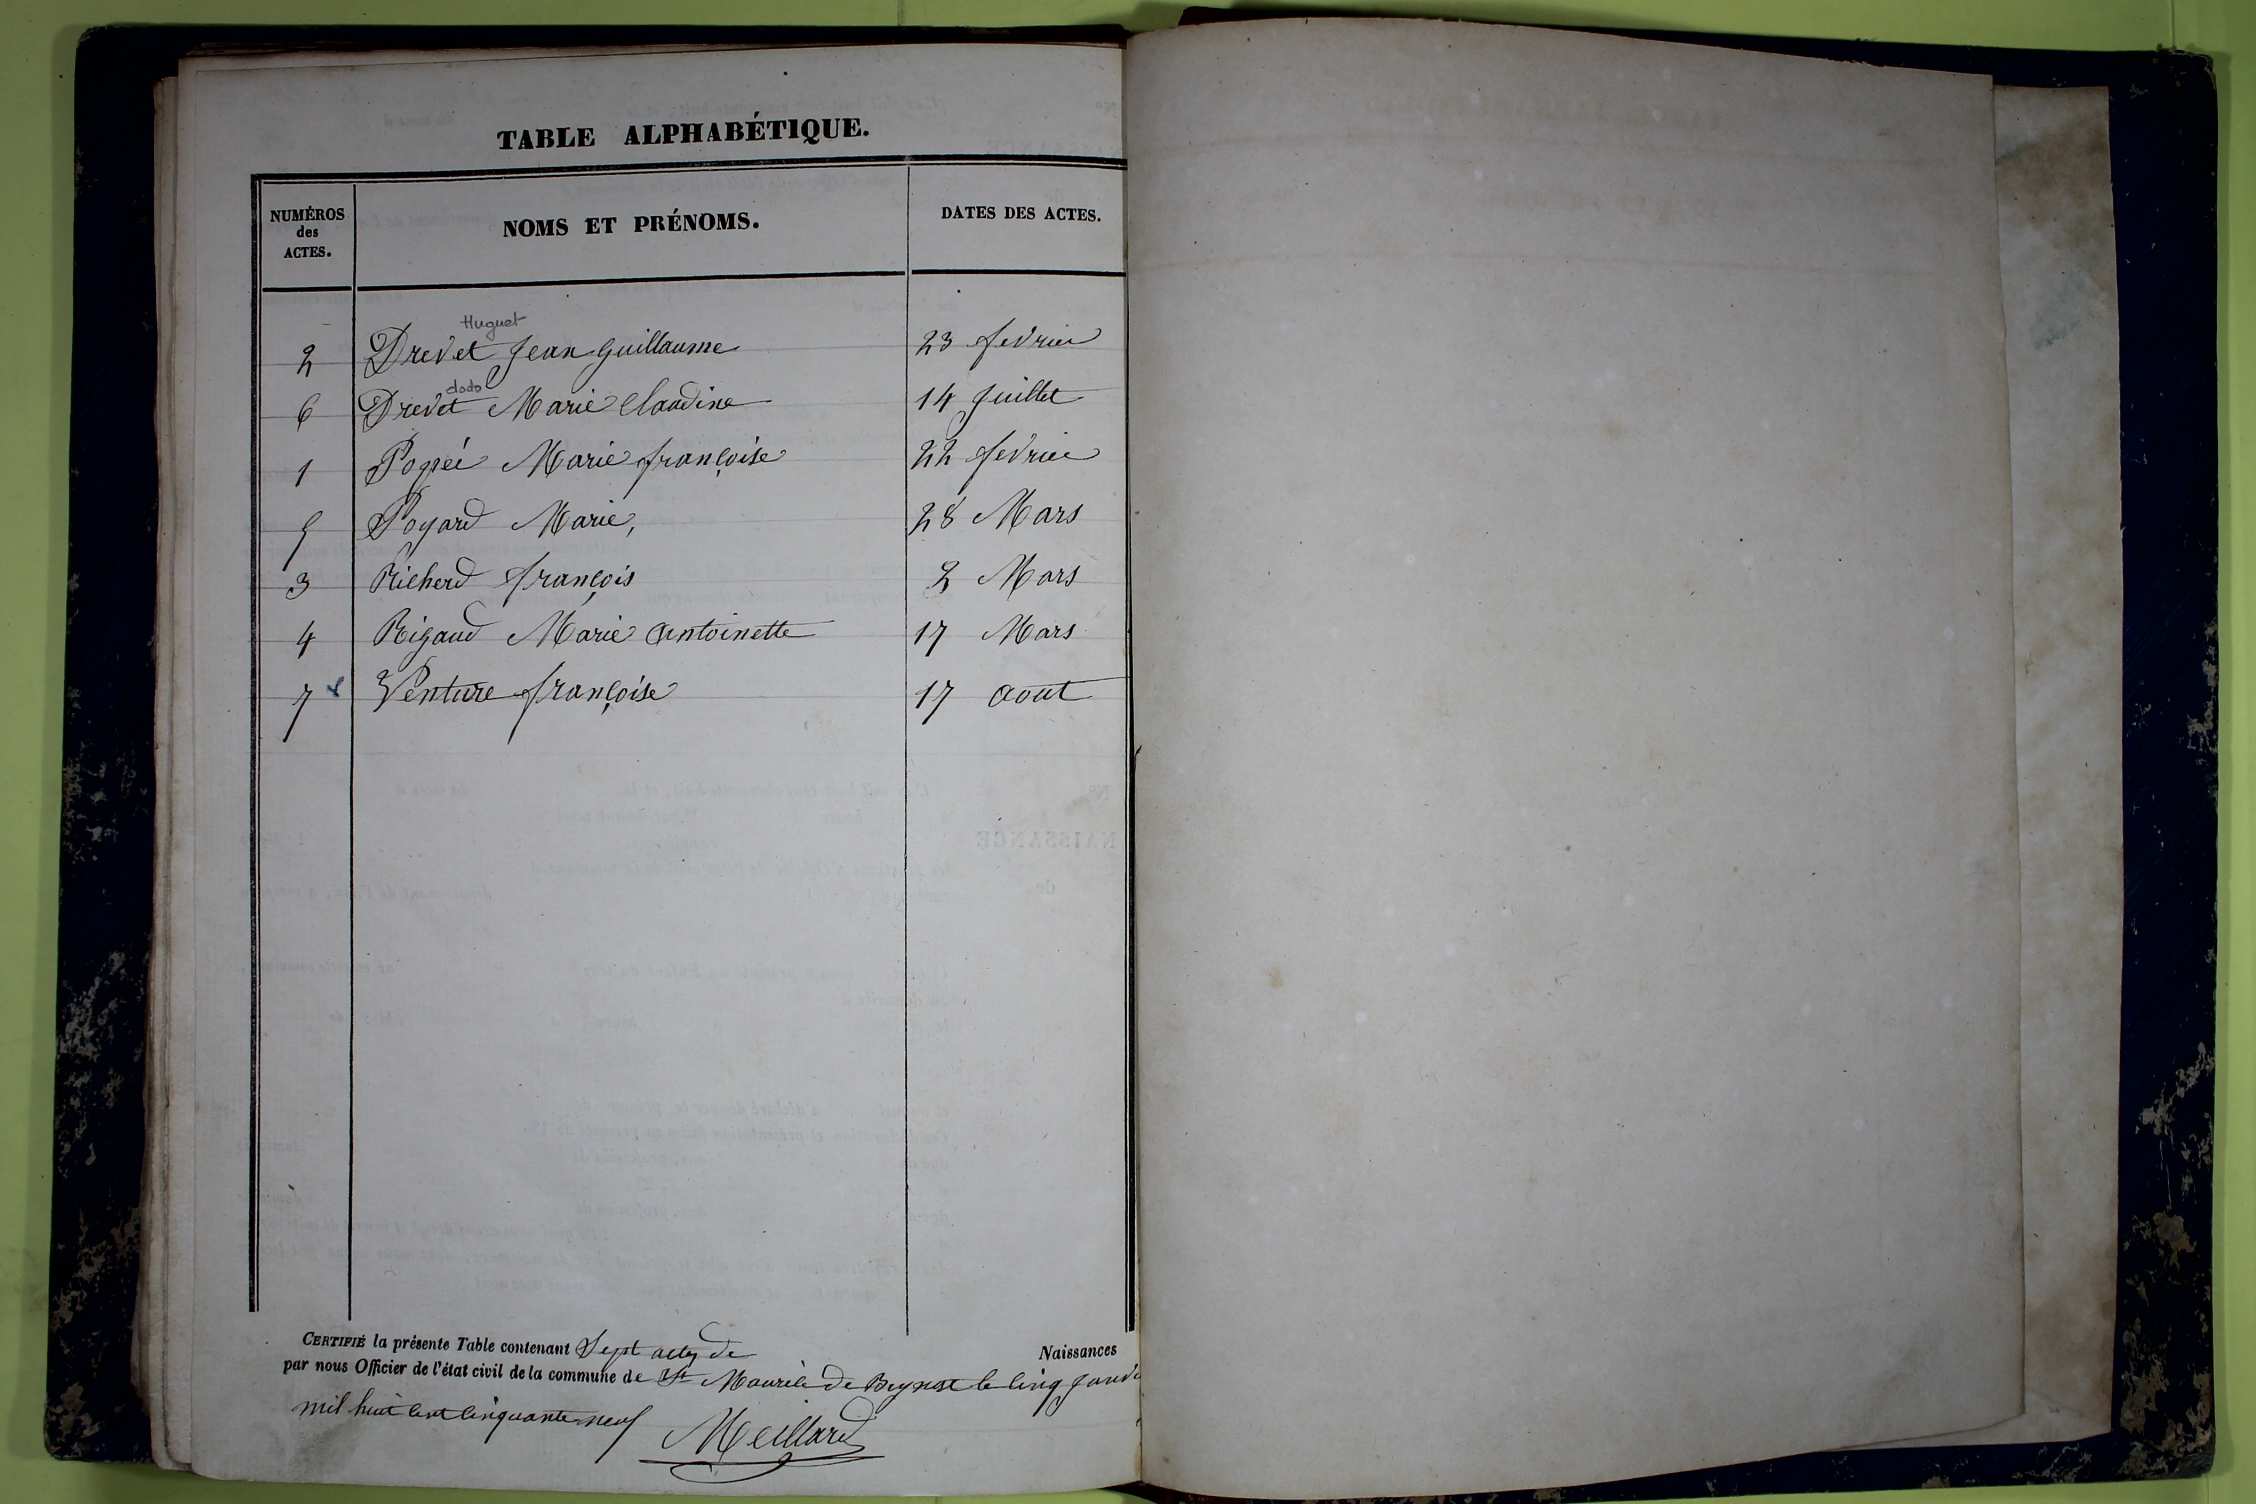 TABLE ALPHABÉTIQUE.
NUMÉROS des ACTES. NOMS ET PRÉNOMS. DATES DES ACTES.
Huguet
2 Drevet Jean Guillaume 23 fevrier
dodo
6 Drevet Marie Claudine 14 Juillet
1 Marie françoise 22 fevrier
5 Poyard Marie, 28 Mars
3 Richerd françois 2 Mars
4 Rigaud Marie Antoinette 17 Mars
7 Venture françoise 17 aout
CERTIFIÉ la présente Table contenant Sept actes de Naissances
par nous Officier de l'état civil de la commune de St Maurice de Beynost le cinq Janvi
mil huit cent cinquante neuf Meillard